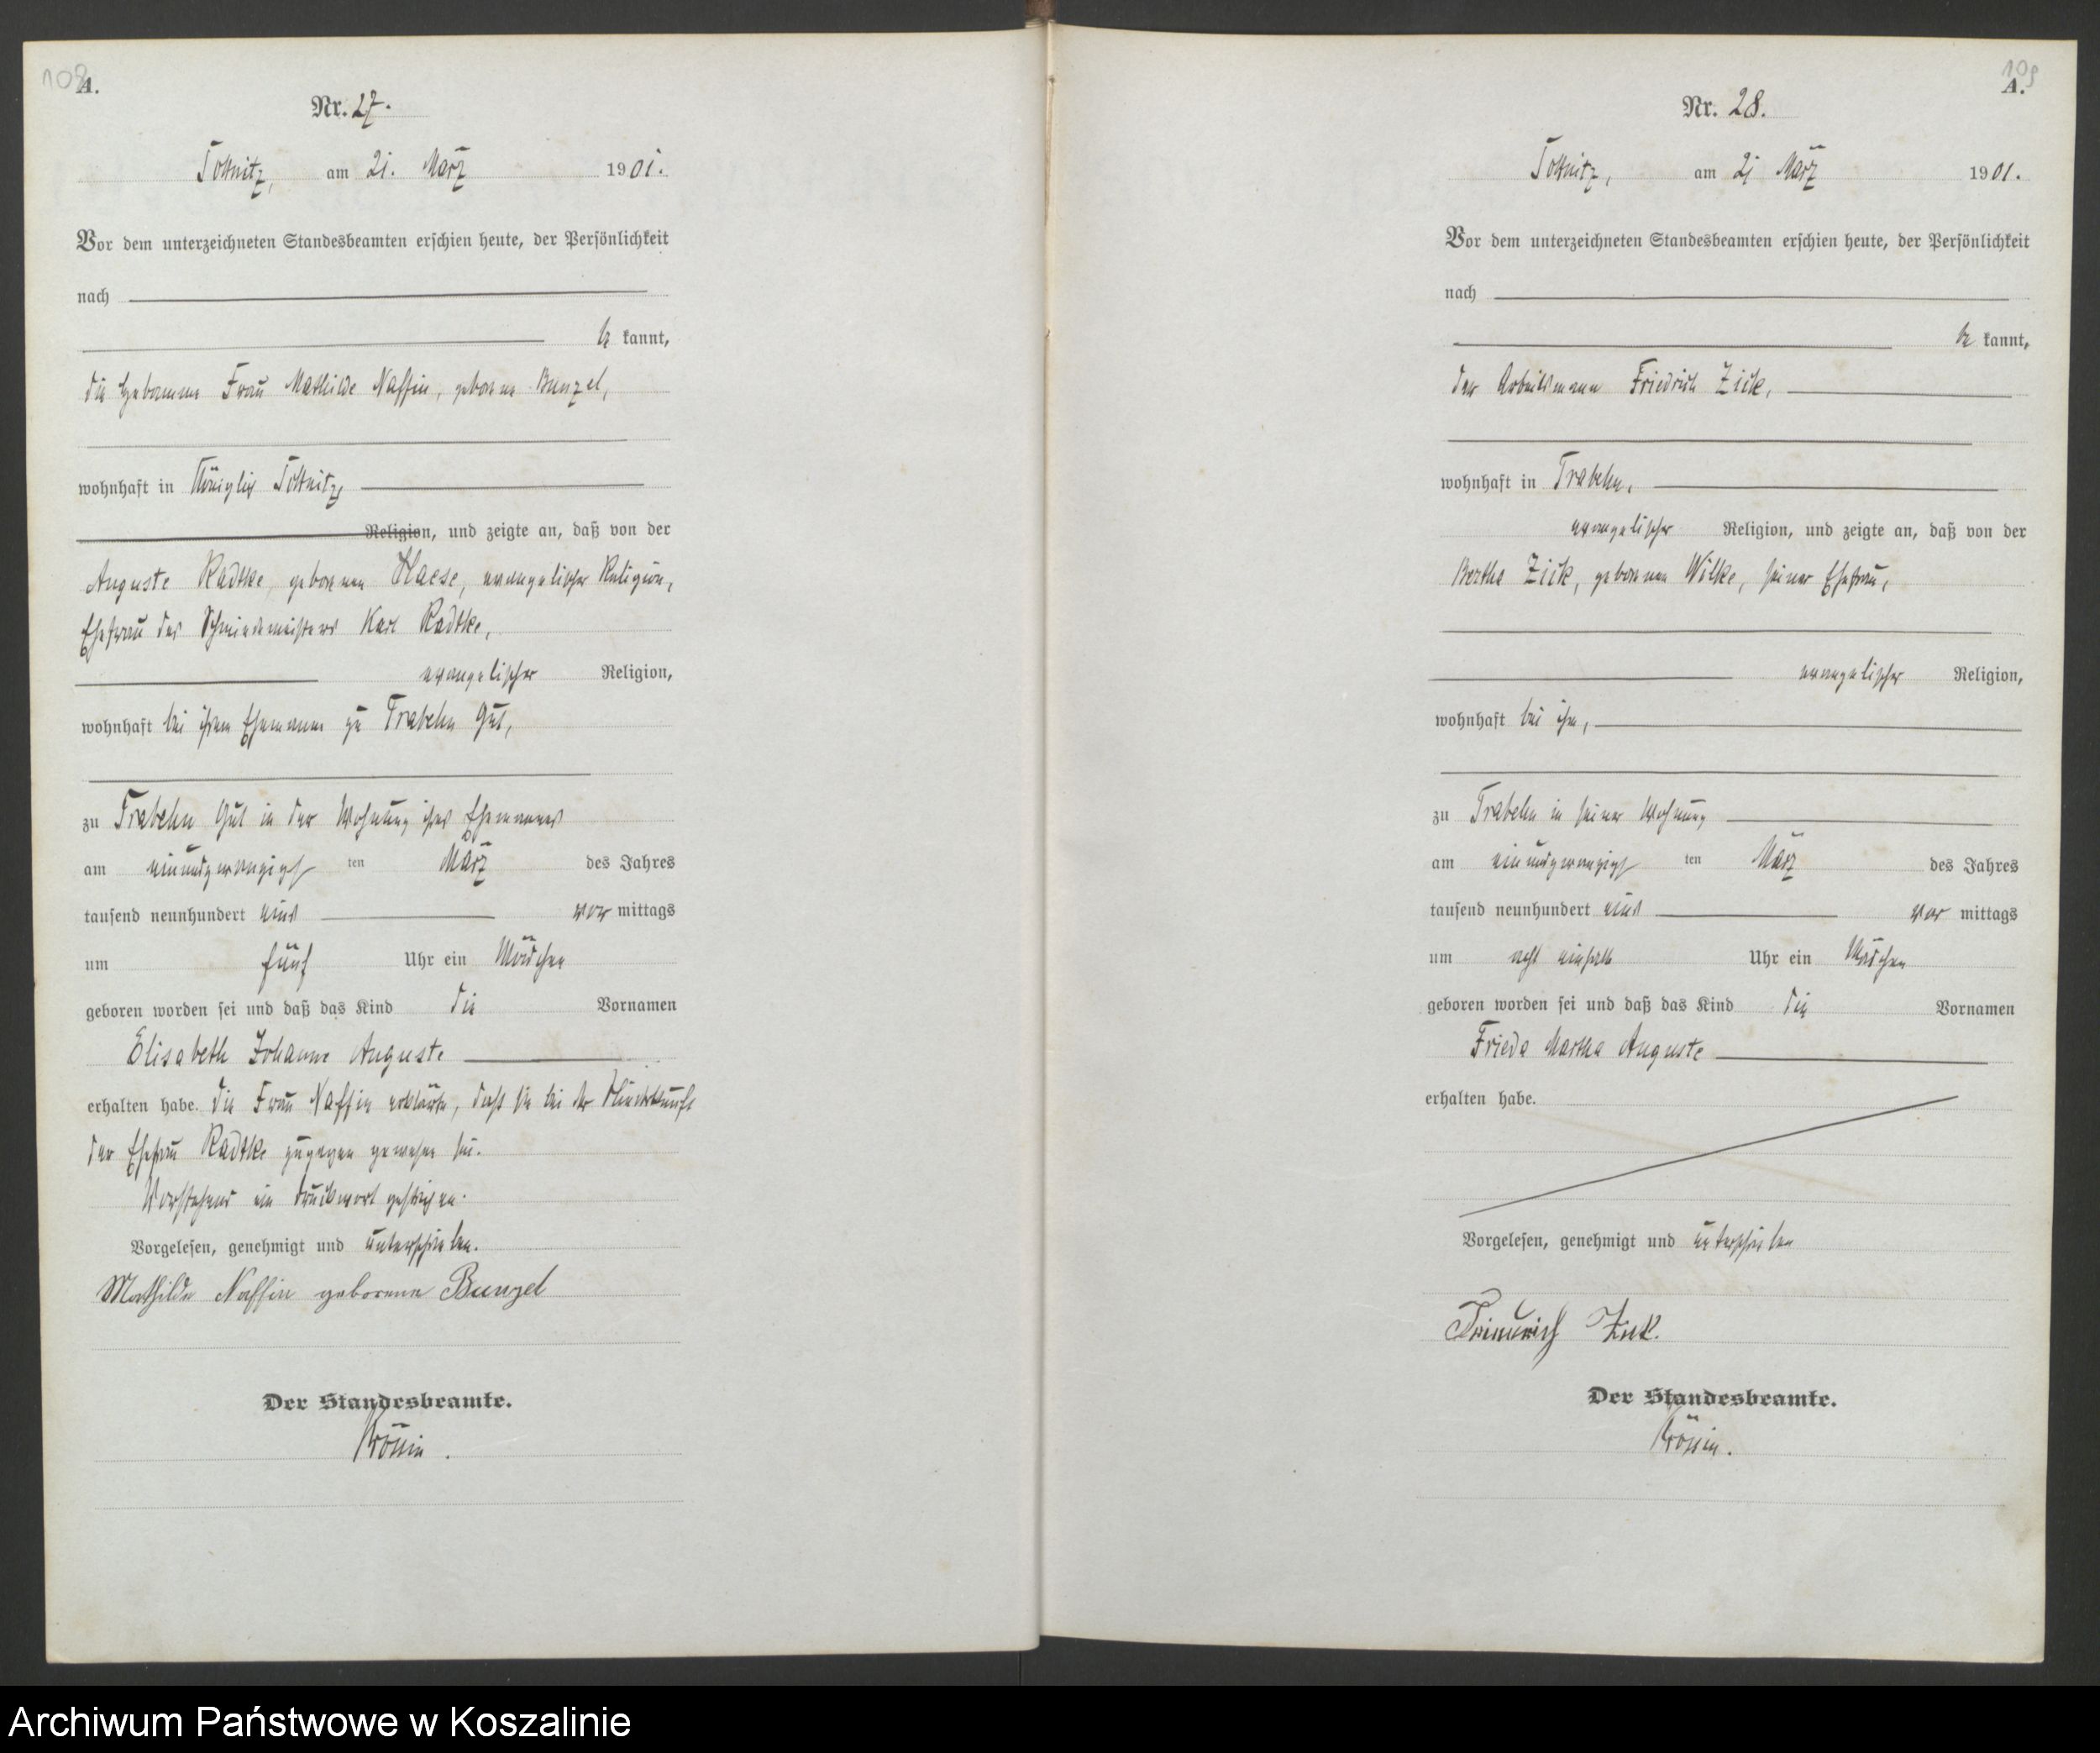 108
A.
Nr. 27.
am 21. März 1901.
Vor dem unterzeichneten Standesbeamten erschien heute, der Persönlichkeit
nach
be kannt,
die Hebamme Frau Mathilde Naffin, geborene Bunzel,
wohnhaft in Königlich
Religion, und zeigte an, daß von der
Auguste Radtke, geborenen Haese, evangelischer Religion,
Ehefrau des Schmiedemeisters Karl Radtke,
evangelischer Religion,
wohnhaft bei ihrem Ehemann zu Trabehn Gut,
zu Trabehn Gut in der Wohnung ihres Ehemannes
am einundzwanzigsten März des Jahres
tausend neunhundert eins vor mittags
um fünf Uhr ein Mädchen
geboren worden sei und daß das Kind die Vornamen
Elisabeth Johanne Auguste
erhalten habe. Die Frau Naffin erklärte, daß sie bei der Niederkunft
der Ehefrau Radtke zugegen gewesen sei.
Vorstehend ein Druckwort gestrichen.
Vorgelesen, genehmigt und unterschrieben.
Mathilde Naffin geborene Bunzel
Der Standesbeamte.
109
A.
Nr. 28.
am 21 März 1901.
Vor dem unterzeichneten Standesbeamten erschien heute, der Persönlichkeit
nach
be kannt,
der Arbeitsmann Friedrich Zick,
wohnhaft in Trabehn,
evangelischer Religion, und zeigte an, daß von der
Bertha Zick, geborenen Wilke, seiner Ehefrau,
evangelischer Religion,
wohnhaft bei ihm,
zu Trabehn in seiner Wohnung
am einundzwanzigsten März des Jahres
tausend neunhundert eins vor mittags
um acht einhalb Uhr ein Mädchen
geboren worden sei und daß das Kind die Vornamen
Frieda Martha Auguste
erhalten habe.
Vorgelesen, genehmigt und unterschrieben
Friedrich Zick.
Der Standesbeamte.
Archiwum Państwowe w Koszalinie